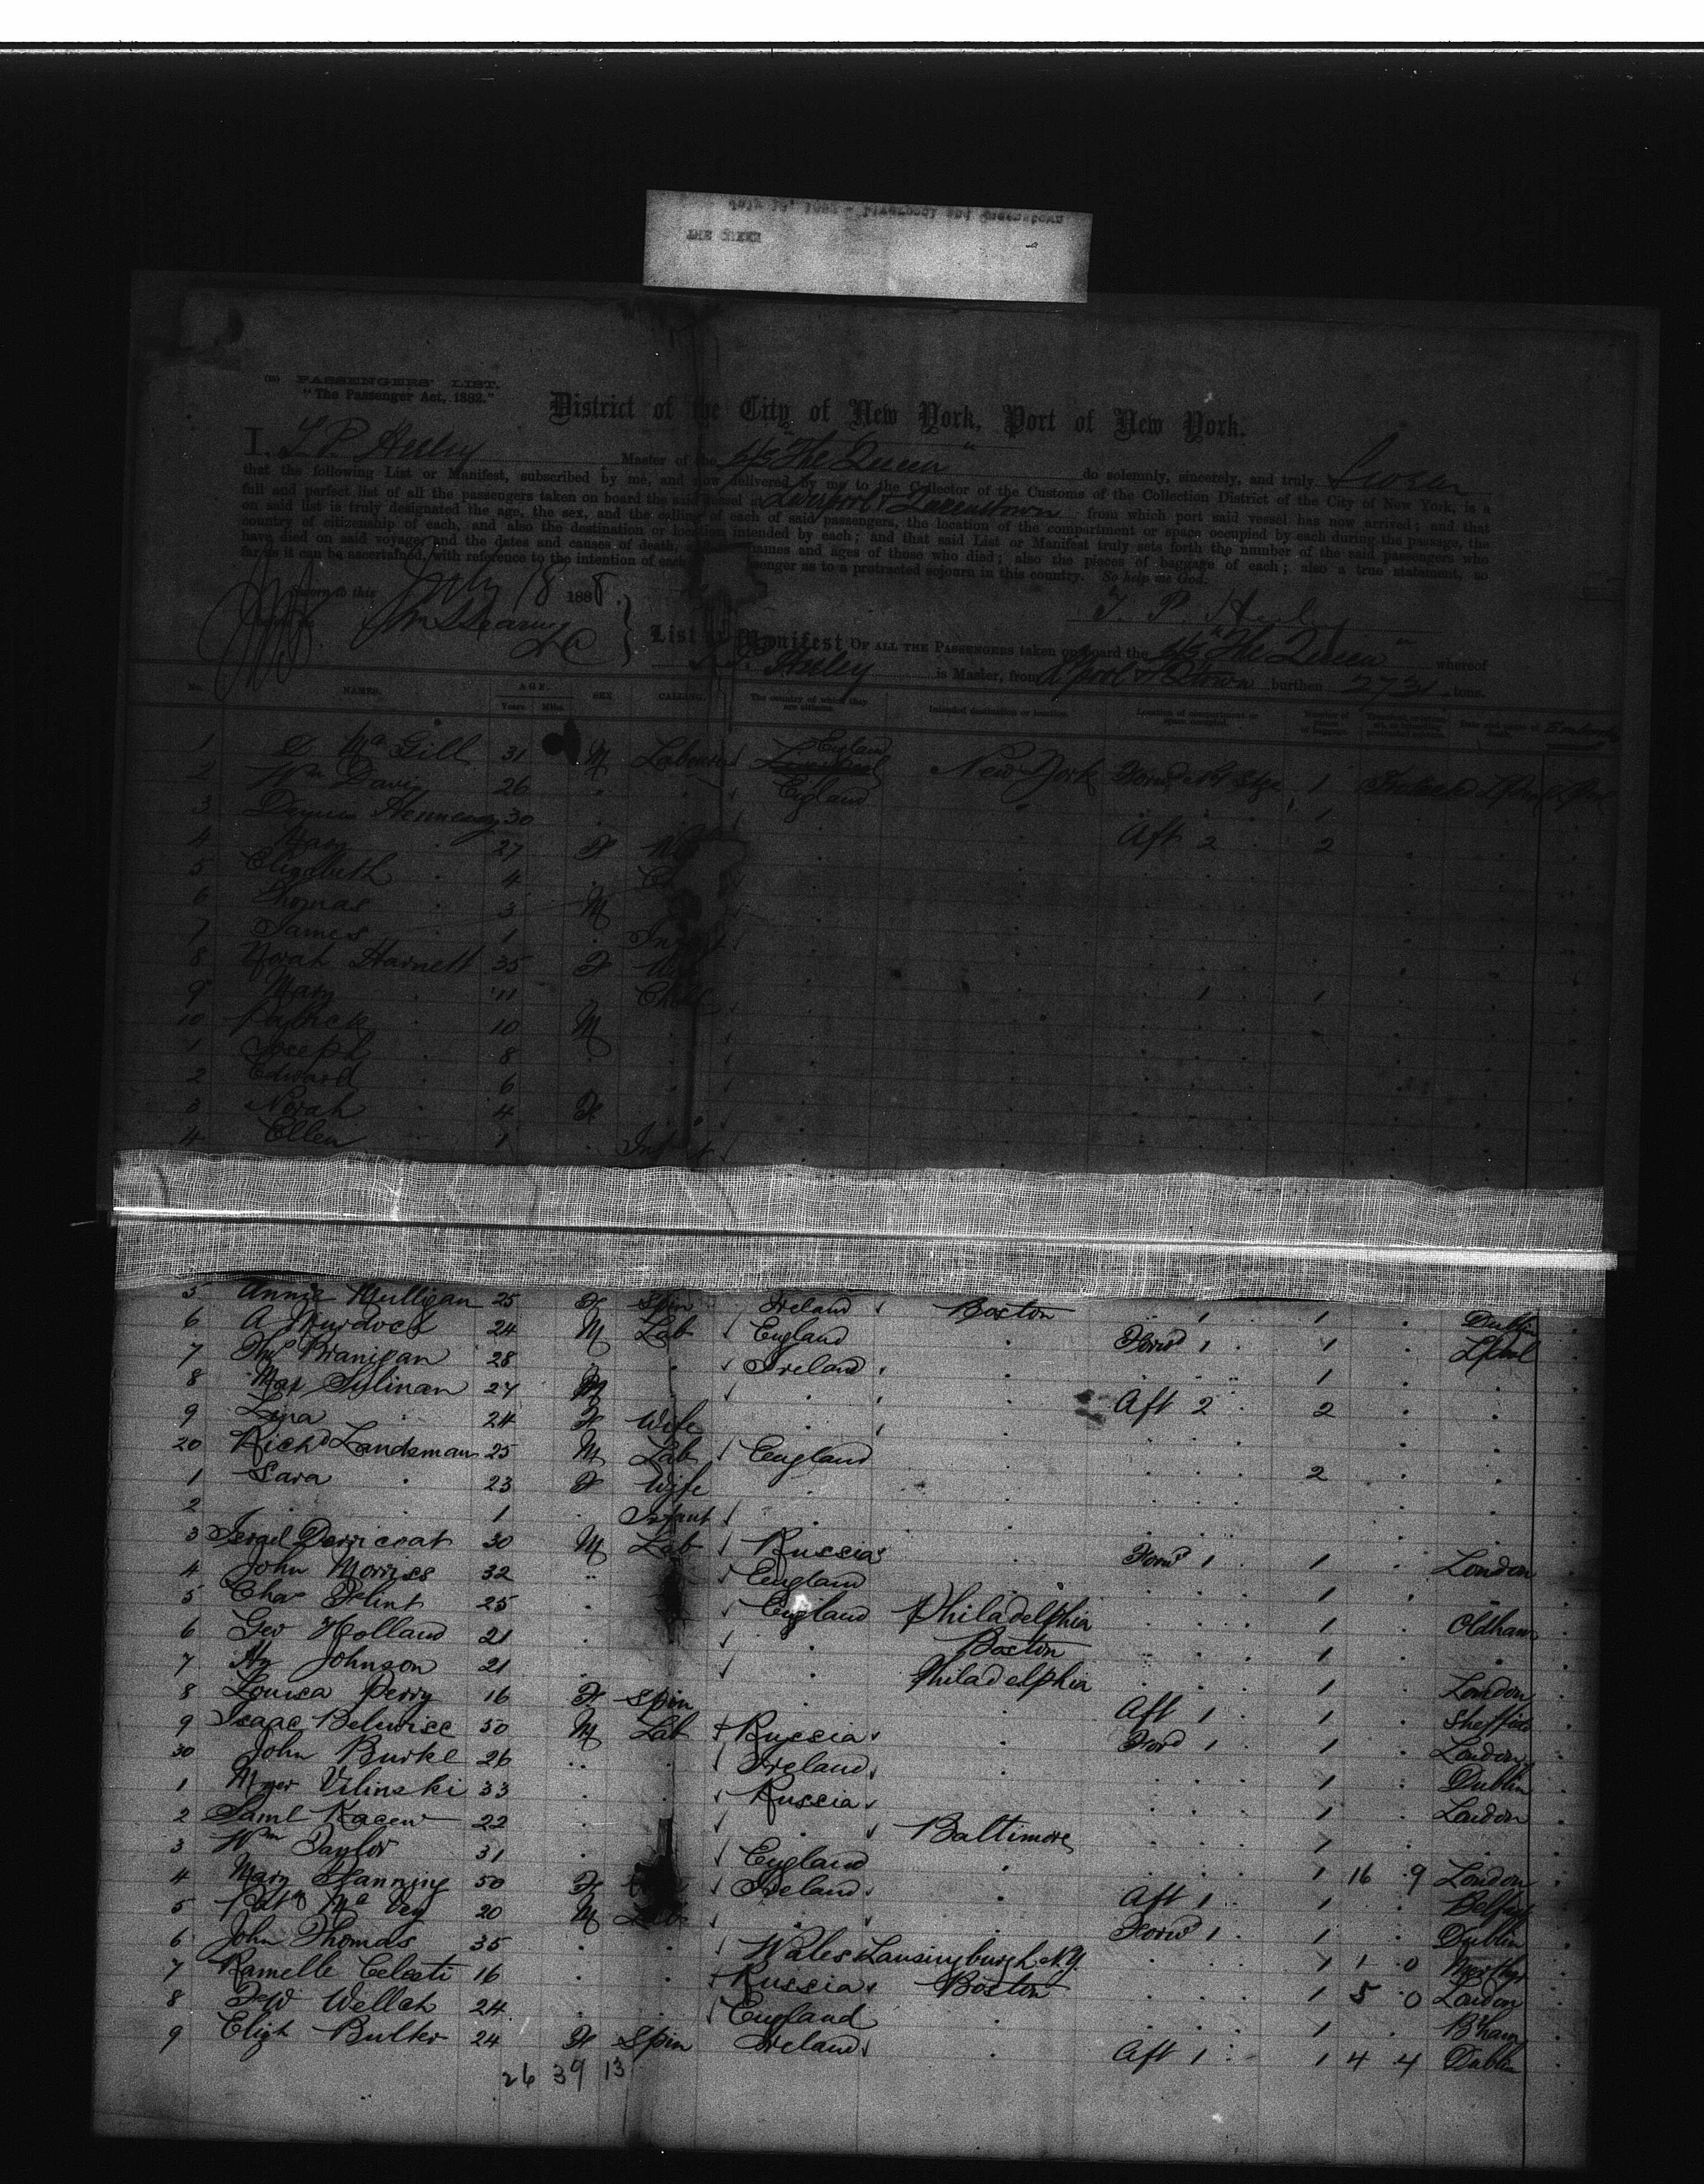 THE QUEEN
(22) PASSENGERS' LIST.
"The Passenger Act, 1882."
District of the City of New York, Port of New York.
I, T. P. Heeley Master of the S/S "The Queen" do solemnly, sincerely, and truly Swear
that the following List or Manifest, subscribed by me, and now delivered by me to the Collector of the Customs of the Collection District of the City of New York, is a
full and perfect list of all the passengers taken on board the said vessel at Liverpool & Queenstown from which port said vessel has now arrived; and that
on said list is truly designated the age, the sex, and the calling of each of said passengers, the location of the compartment or space occupied by each during the passage, the
country of citizenship of each, and also the destination or location intended by each; and that said List or Manifest truly sets forth the number of the said passengers who
have died on said voyage, and the dates and causes of death, names and ages of those who died; also the pieces of baggage of each; also a true statement, so
far as it can be ascertained, with reference to the intention of each passenger as to a protracted sojourn in this country. So help me God.
Sworn to this July 18 1888.
T. P. Heeley
List or Manifest OF ALL THE PASSENGERS taken on board the S/S "The Queen" whereof
T. P. Heeley is Master, from Lpool & Qtown burthen 2731 tons.
No. NAMES. AGE. Years Mths. SEX CALLING. The country of which they are citizens. Intended destination or location. Location of compartment or space occupied. Number of pieces of baggage. Date and cause of death.
1 Mc Gill 31 M Labourer England New York Forwd 1 1
2 Wm Davis 26 " " England 1
3 Hennessy 30
4 Mary 27 F Wife Aft 2 2
5 Elizabeth 4
6 Thomas 3 M
7 James 1 Infant
8 Norah Harnett 35 F Wife
9 Mary 11 Child 1 1
10 Patrick 10 M
1 Joseph 8
2 Edward 6
3 Norah 4 F
4 Ellen 1 Infant
5 Annie Mulligan 25 F Spin Ireland Boston 1 1 Dublin
6 A Murdock 24 M Lab England Forwd 1 1 Lpool
7 Thos Branigan 28 Ireland 1
8 Max Sylinan 27 M Aft 2 2
9 Lina 24 F Wife
20 Richd Landsman 25 M Lab England 2
1 Sara 23 F Wife
2 1 Infant
3 Israel Derricoat 30 M Lab Russia Forwd 1 1 London
4 John Morriss 32 " England 1 "
5 Chas Flint 25 England Philadelphia 1 Oldham
6 Geo Holland 21 Boston 1
7 Hy Johnson 21 Philadelphia 1 London
8 Louisa Perry 16 F Spin Aft 1 1 Sheffield
9 Isaac Belurisc 50 M Lab Russia Ford 1 1 London
30 John Burke 26 " Ireland 1 Dublin
1 Myer Vilinski 33 Russia 1 London
2 Saml Kacew 22 Baltimore 1
3 Wm Taylor 31 England 1 16 9 London
4 Mary Flanning 50 F Ireland Aft 1 1 Belfast
5 Patk Mc Vey 20 M Lab Forwd 1 1 Dublin
6 John Thomas 35 Wales Lansingburgh N.Y. 1 1 0 Merthyr
7 Ramelle Celesti 16 Russia Boston 1 5 0 London
8 Fw Wellch 24 England 1 B'ham
9 Eligh Bulter 24 F Spin Ireland Aft 1 1 4 4 Dublin
26 39 13